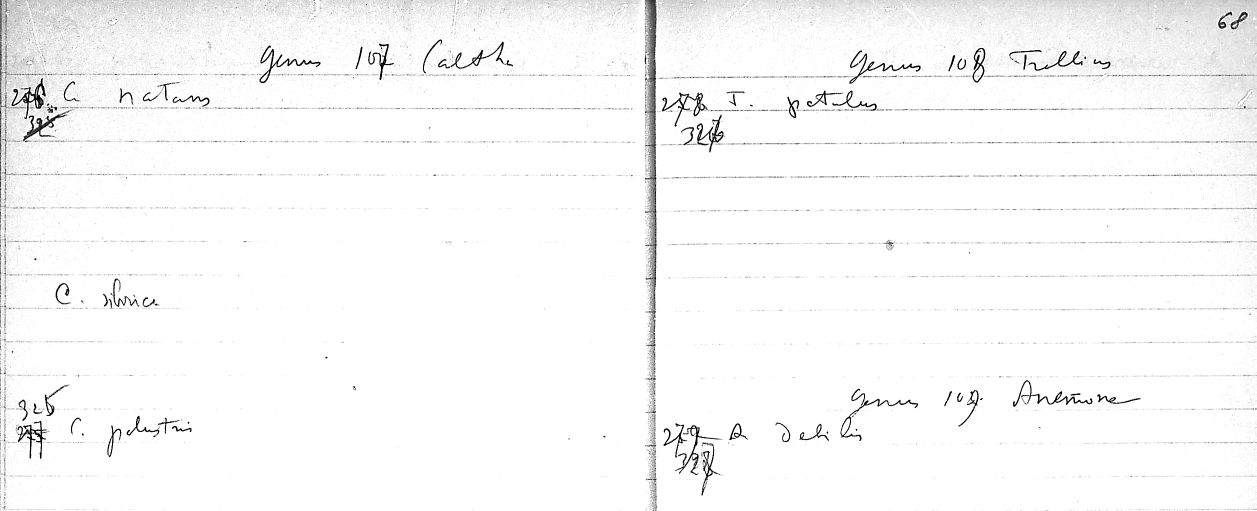 Genus 107 Caltha
276 C. natans
C. sibirica
325
277 C. palustris
68
Genus 108 Trollius
278 T. patulus
326
Genus 109. Anemone
279 A debilis
327